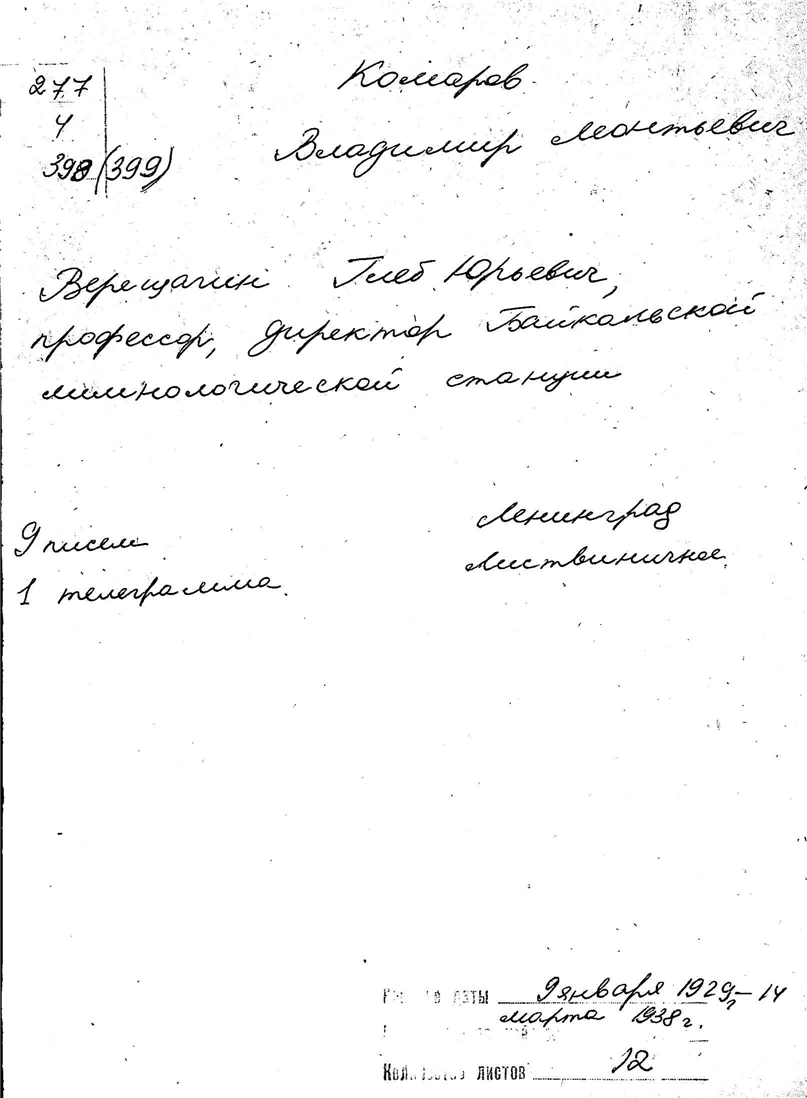 277
4
398 (399)
Комаров
Владимир Леонтьевич
Верещагин Глеб Юрьевич,
профессор, директор Байкальской
лимнологической станции
9 писем
1 телеграмма.
Ленинград
Лиственичное.
даты 9 января 1929 г. – 14
марта 1938 г.
Количество листов 12